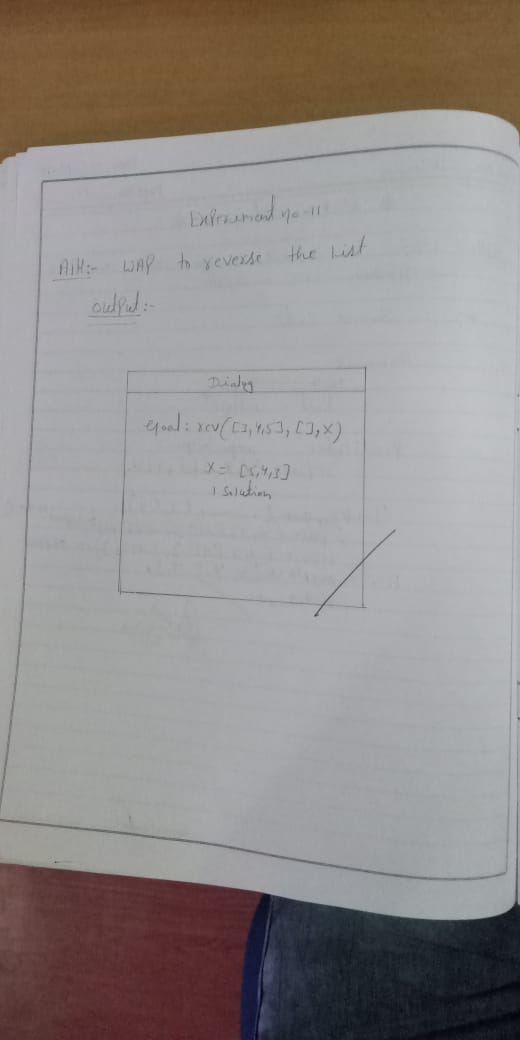 Experiment no-11
AIM:- WAP to reverse the List
output:-
Dialog
goal: rev([3,4,5], [], X)
X = [5,4,3]
1 Solution